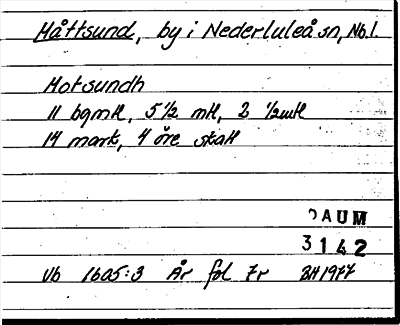 Måttsund, by i Nederluleå sn, Nb.l.
Motsundh
11 bgmtl, 5 1/2 mtl, 2 1/2mtl
14 mark, 4 öre skatt
DAUM
3142
Vb 1605:3 År fol 7r BH1977